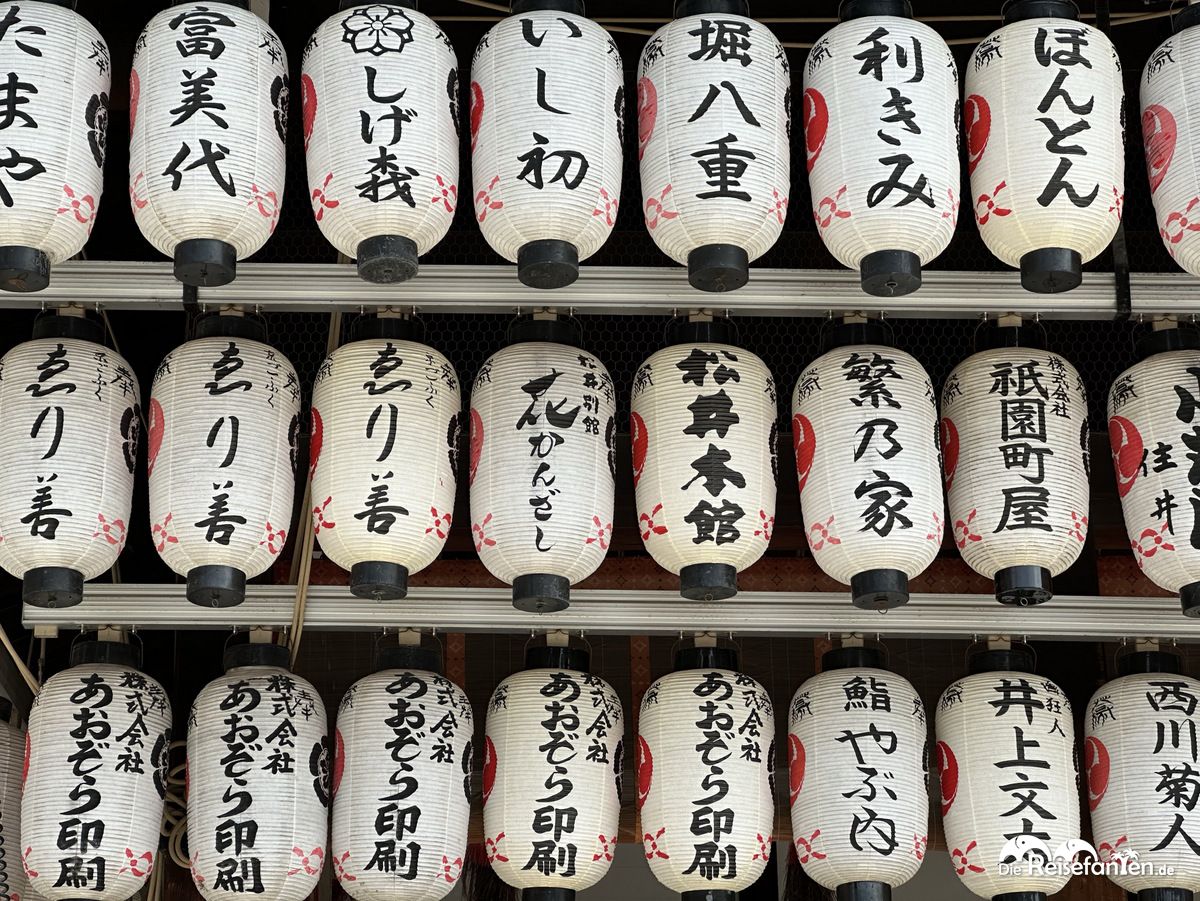 たまや
富美代
しげ森
いし初
堀八重
利きみ
ぼんとん
京ごふく
ゑり善
京ごふく
ゑり善
京ごふく
ゑり善
松井別館
花かんざし
松井本館
繁乃家
株式会社
祇園町屋
住井
株式会社
あおぞら印刷
株式会社
あおぞら印刷
株式会社
あおぞら印刷
株式会社
あおぞら印刷
株式会社
あおぞら印刷
鮨やぶ内
井上文
西川菊人
Die Reisefanten.de